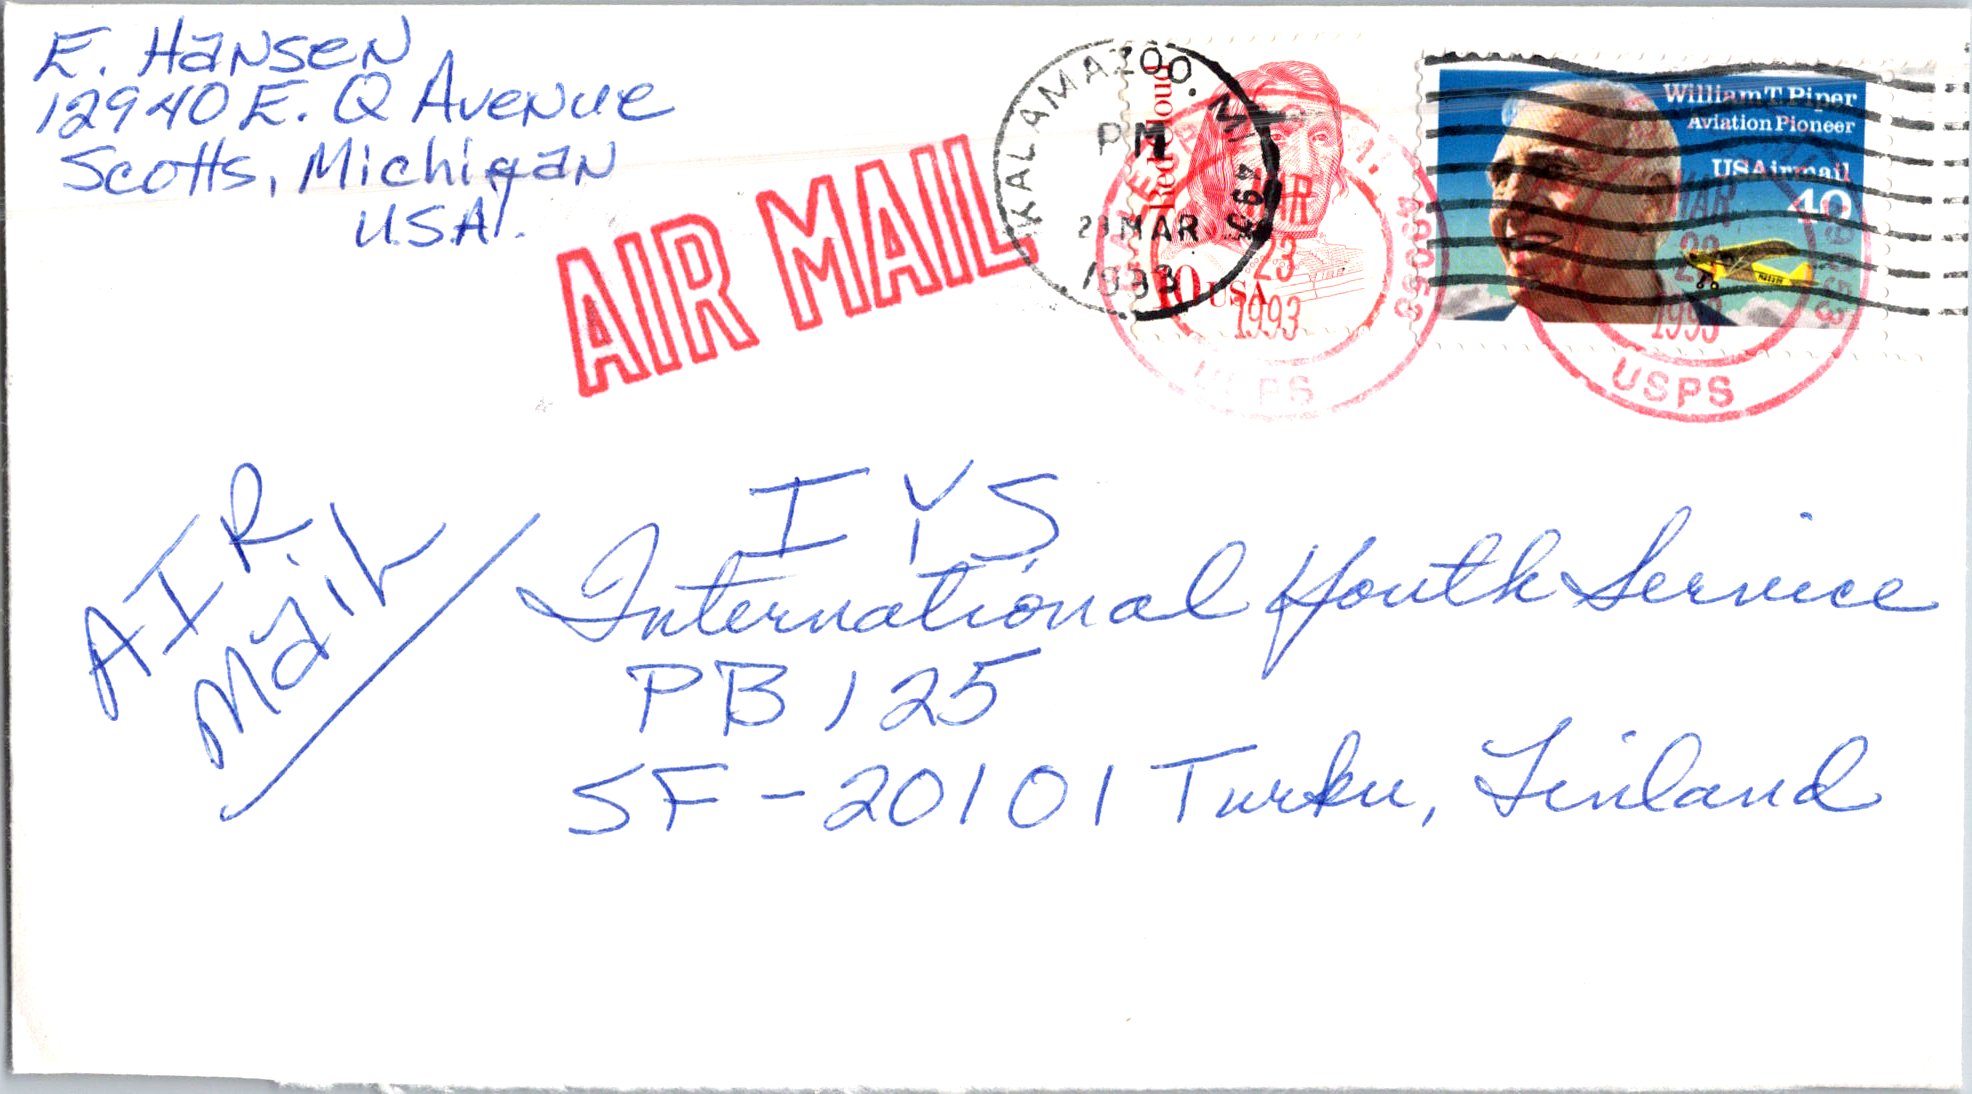 E. Hansen
12940 E. Q Avenue
Scotts, Michigan
U.S.A.
AIR MAIL
KALAMAZOO, MI 490
PM
MAR
1993
Red Cloud
10 USA
MAR
23
1993
49053
USPS
William T. Piper
Aviation Pioneer
USAirmail
40
MAR
23
1993
49053
USPS
AIR
Mail
IYS
International Youth Service
PB 125
SF-20101 Turku, Finland